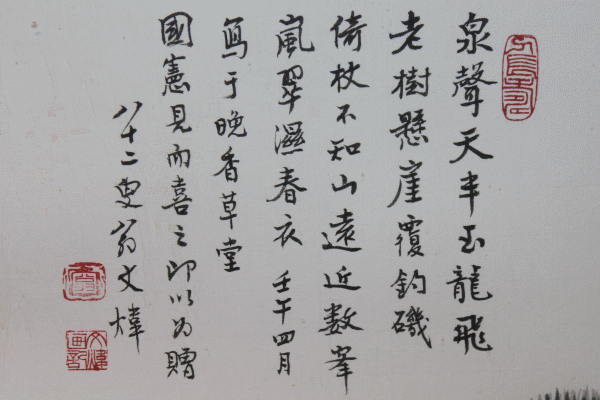 泉聲天半玉龍飛
老樹懸崖覆釣磯
倚杖不知山遠近數峯
嵐翠濕春衣 壬午四月
寫于晚香草堂
國憲見而喜之即以為贈
八十二叟翁文煒
文煒